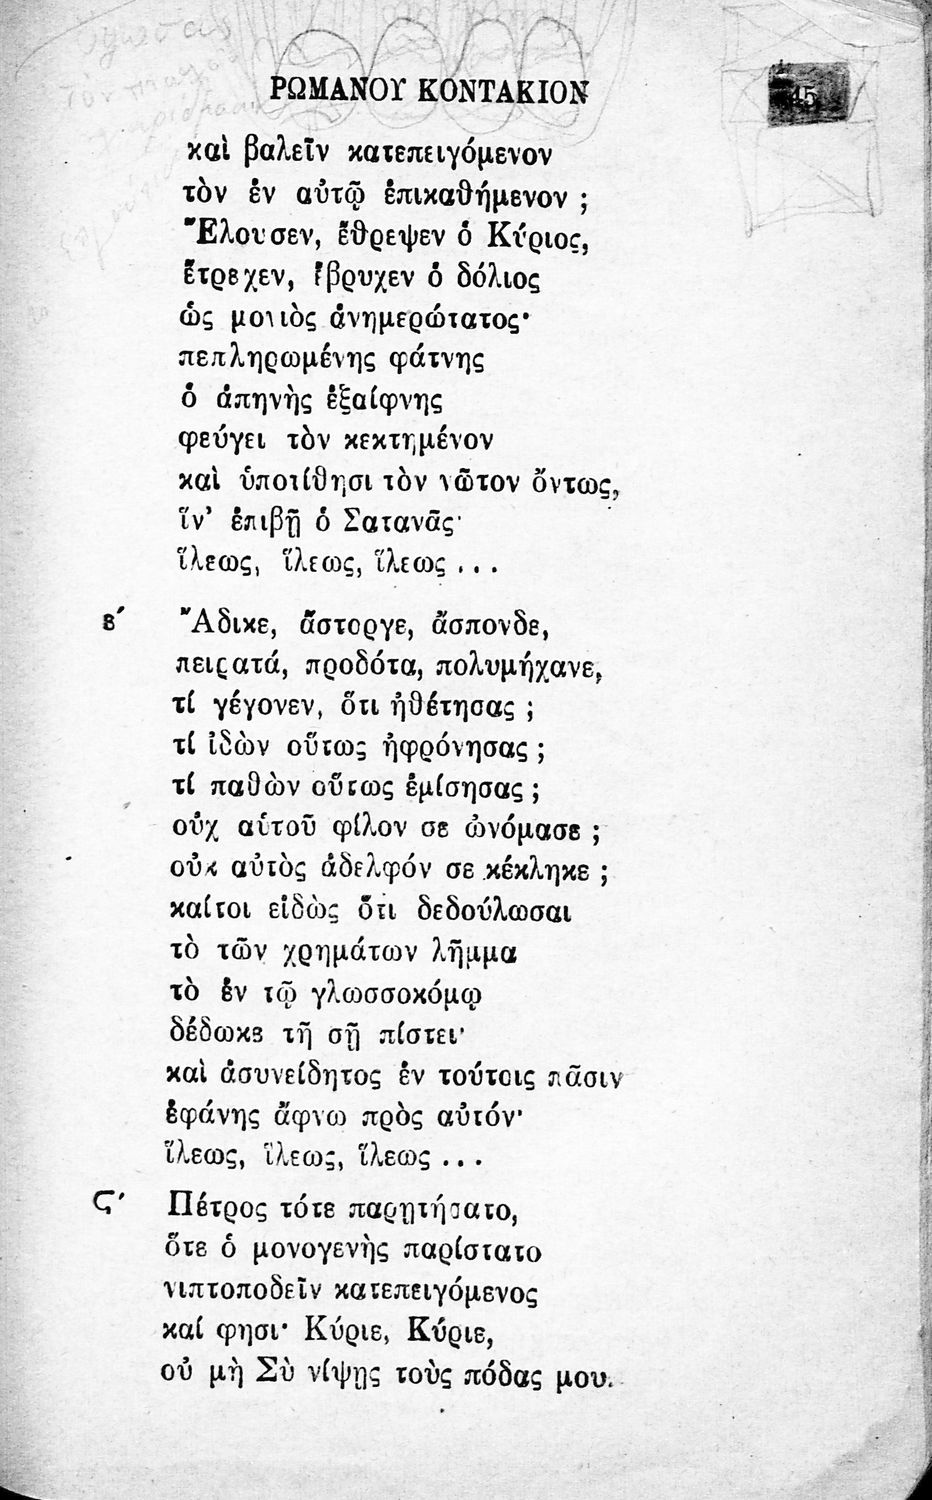 ΡΩΜΑΝΟΥ ΚΟΝΤΑΚΙΟΝ
45
καὶ βαλεῖν κατεπειγόμενον
τὸν ἐν αὐτῷ ἐπικαθήμενον ;
Ἔλουσεν, ἔθρεψεν ὁ Κύριος,
ἔτρεχεν, ἔβρυχεν ὁ δόλιος
ὡς μονιὸς ἀνημερώτατος·
πεπληρωμένης φάτνης
ὁ ἀπηνὴς ἐξαίφνης
φεύγει τὸν κεκτημένον
καὶ ὑποτίθησι τὸν νῶτον ὄντως,
ἵν' ἐπιβῇ ὁ Σατανᾶς·
ἵλεως, ἵλεως, ἵλεως ...
ε΄ Ἄδικε, ἄστοργε, ἄσπονδε,
πειρατά, προδότα, πολυμήχανε,
τί γέγονεν, ὅτι ἠθέτησας ;
τί ἰδὼν οὕτως ἠφρόνησας ;
τί παθὼν οὕτως ἐμίσησας ;
οὐχ αὑτοῦ φίλον σε ὠνόμασε ;
οὐκ αὐτὸς ἀδελφόν σε κέκληκε ;
καίτοι εἰδὼς ὅτι δεδούλωσαι
τὸ τῶν χρημάτων λῆμμα
τὸ ἐν τῷ γλωσσοκόμῳ
δέδωκε τῇ σῇ πίστει·
καὶ ἀσυνείδητος ἐν τούτοις πᾶσιν
ἐφάνης ἄφνω πρὸς αὐτόν·
ἵλεως, ἵλεως, ἵλεως ...
ς΄ Πέτρος τότε παρῃτήσατο,
ὅτε ὁ μονογενὴς παρίστατο
νιπτοποδεῖν κατεπειγόμενος
καί φησι· Κύριε, Κύριε,
οὐ μὴ Σὺ νίψῃς τοὺς πόδας μου.